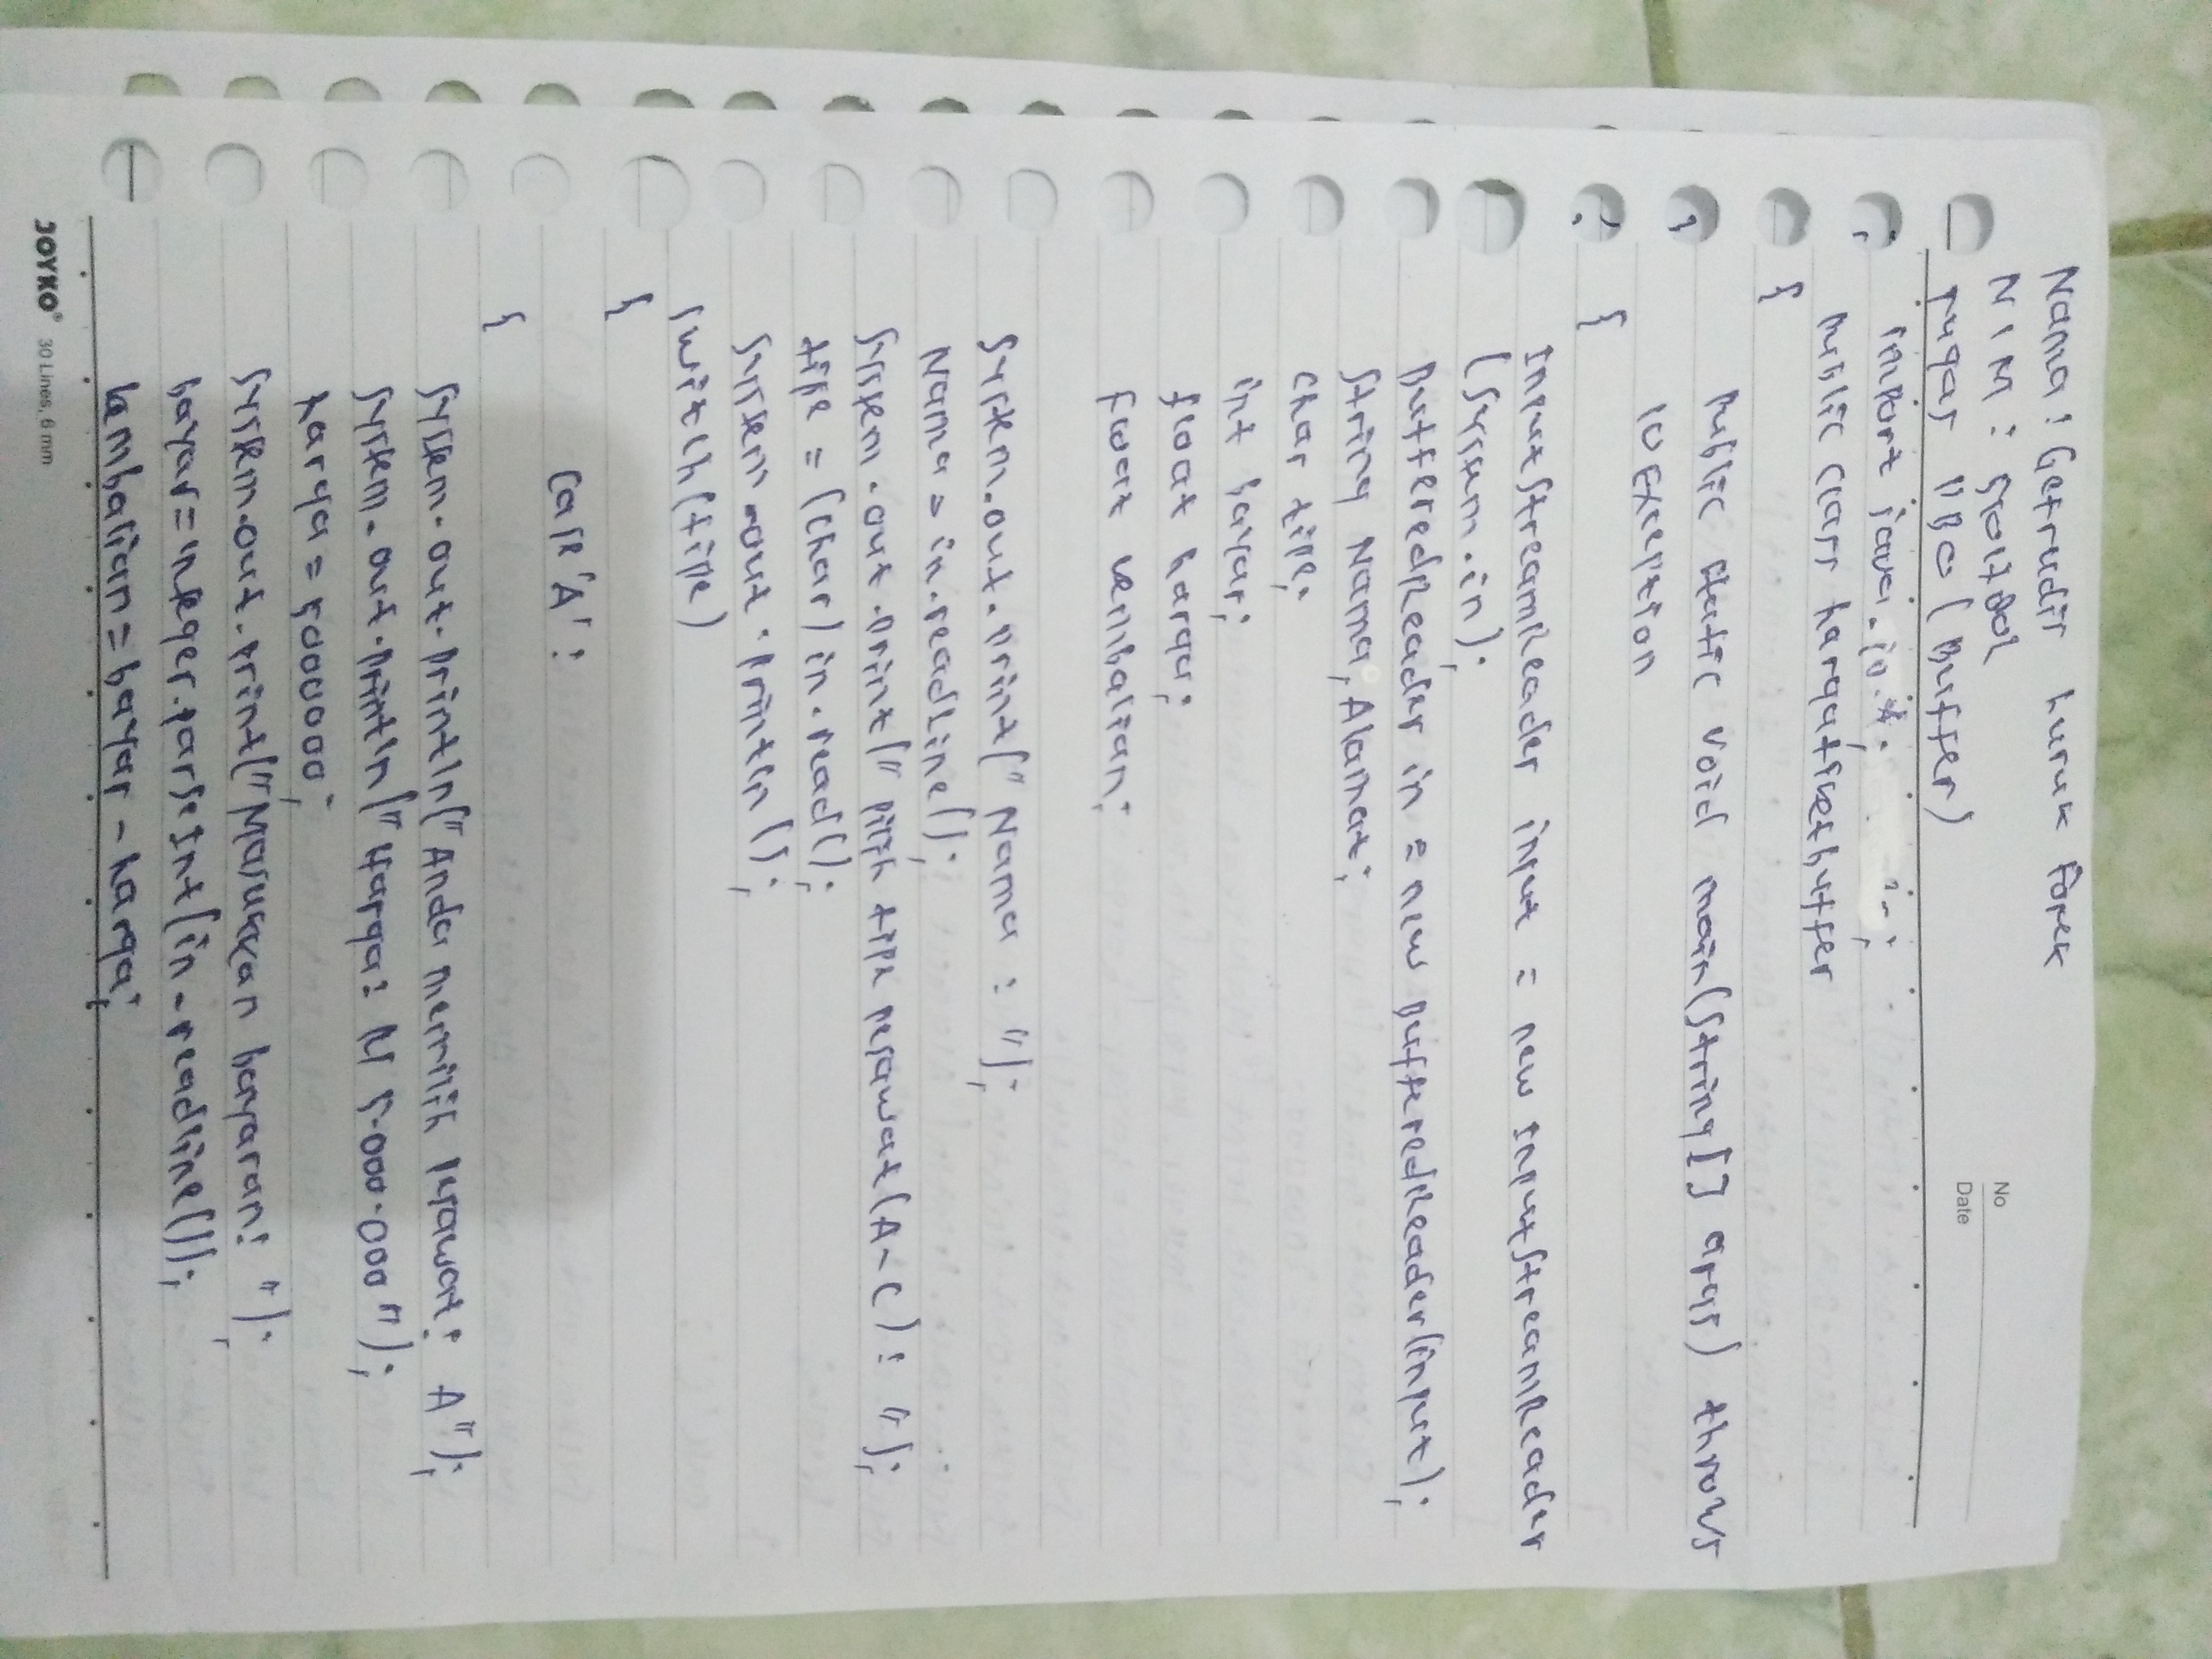 No
Date
Nama : Getrudis kuruk Forek
NIM :
Tugas PBO (Buffer)
import java.io.*;
public class hargatiketbuffer
{
public static void main(String[] args) throws
IOException
{
InputStreamReader input = new InputStreamReader
(System.in);
BufferedReader in = new BufferedReader(input);
String Nama, Alamat;
char tipe;
int bayar;
float harga;
float kembalian;
System.out.print("Nama : ");
Nama = in.readLine();
System.out.print("pilih tipe pesawat (A-C) : ");
tipe = (char) in.read();
System.out.println();
switch(tipe)
{
Case 'A' :
{
System.out.println("Anda memilih pesawat : A");
System.out.println("Harga : Rp 5.000.000");
harga = 5000000;
System.out.print("Masukkan bayaran : ");
bayar = integer.parseInt(in.readline());
kembalian = bayar - harga;
JOYKO® 30 Lines, 6 mm